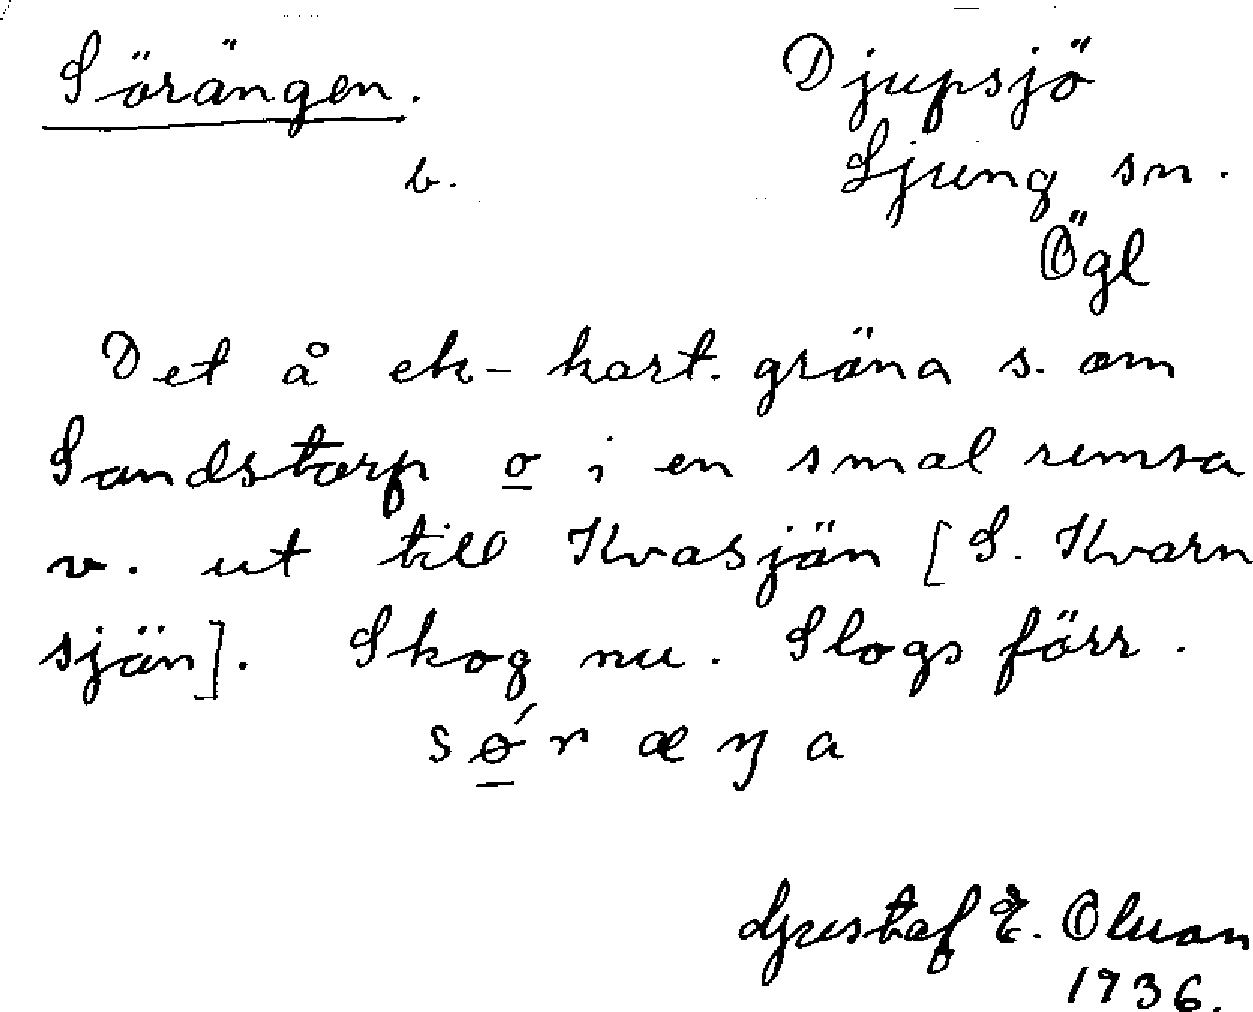 Sörängen.
Djupsjö
b.
Ljung sn.
Ögl
Det å ek- kart. gräna s. om
Sandstorp o i en smal remsa
v. ut till Kvasjän [S. Kvarn
sjän]. Skog nu. Slogs förr.
sǿ̲r æ ŋ a
Gustaf E. Olsson
1936.